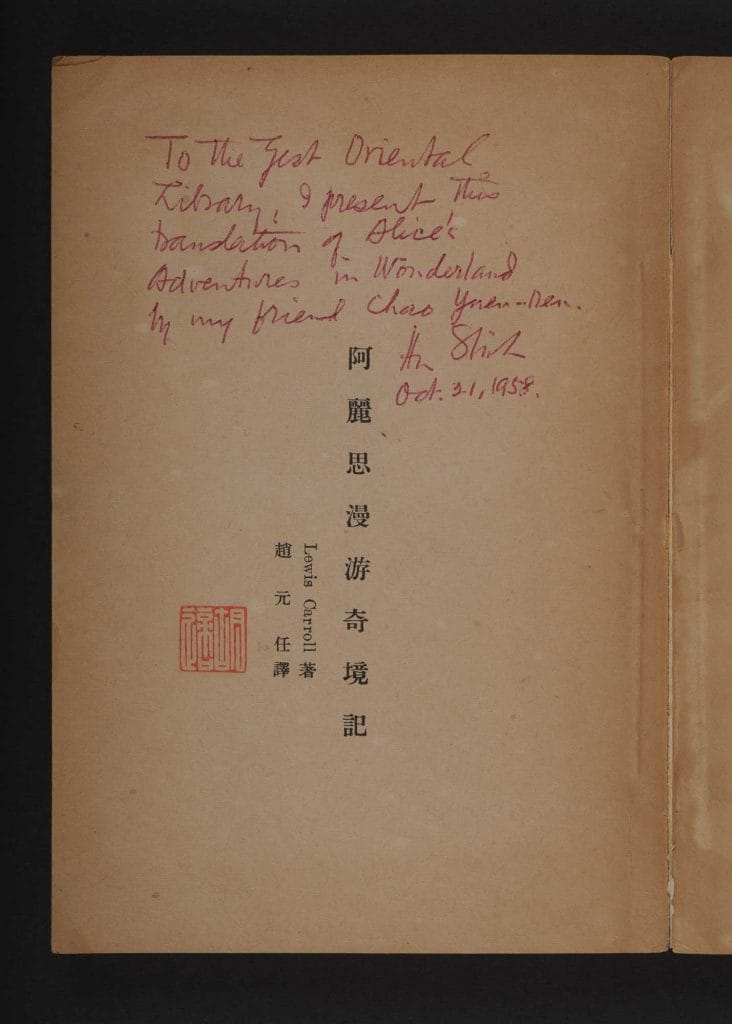 To the Gest Oriental
Library, I present this
translation of Alice's
Adventures in Wonderland
by my friend Chao Yuen-ren.
Hu Shih
Oct. 21, 1958.
阿麗思漫游奇境記
Lewis Carroll 著
趙元任譯
胡適